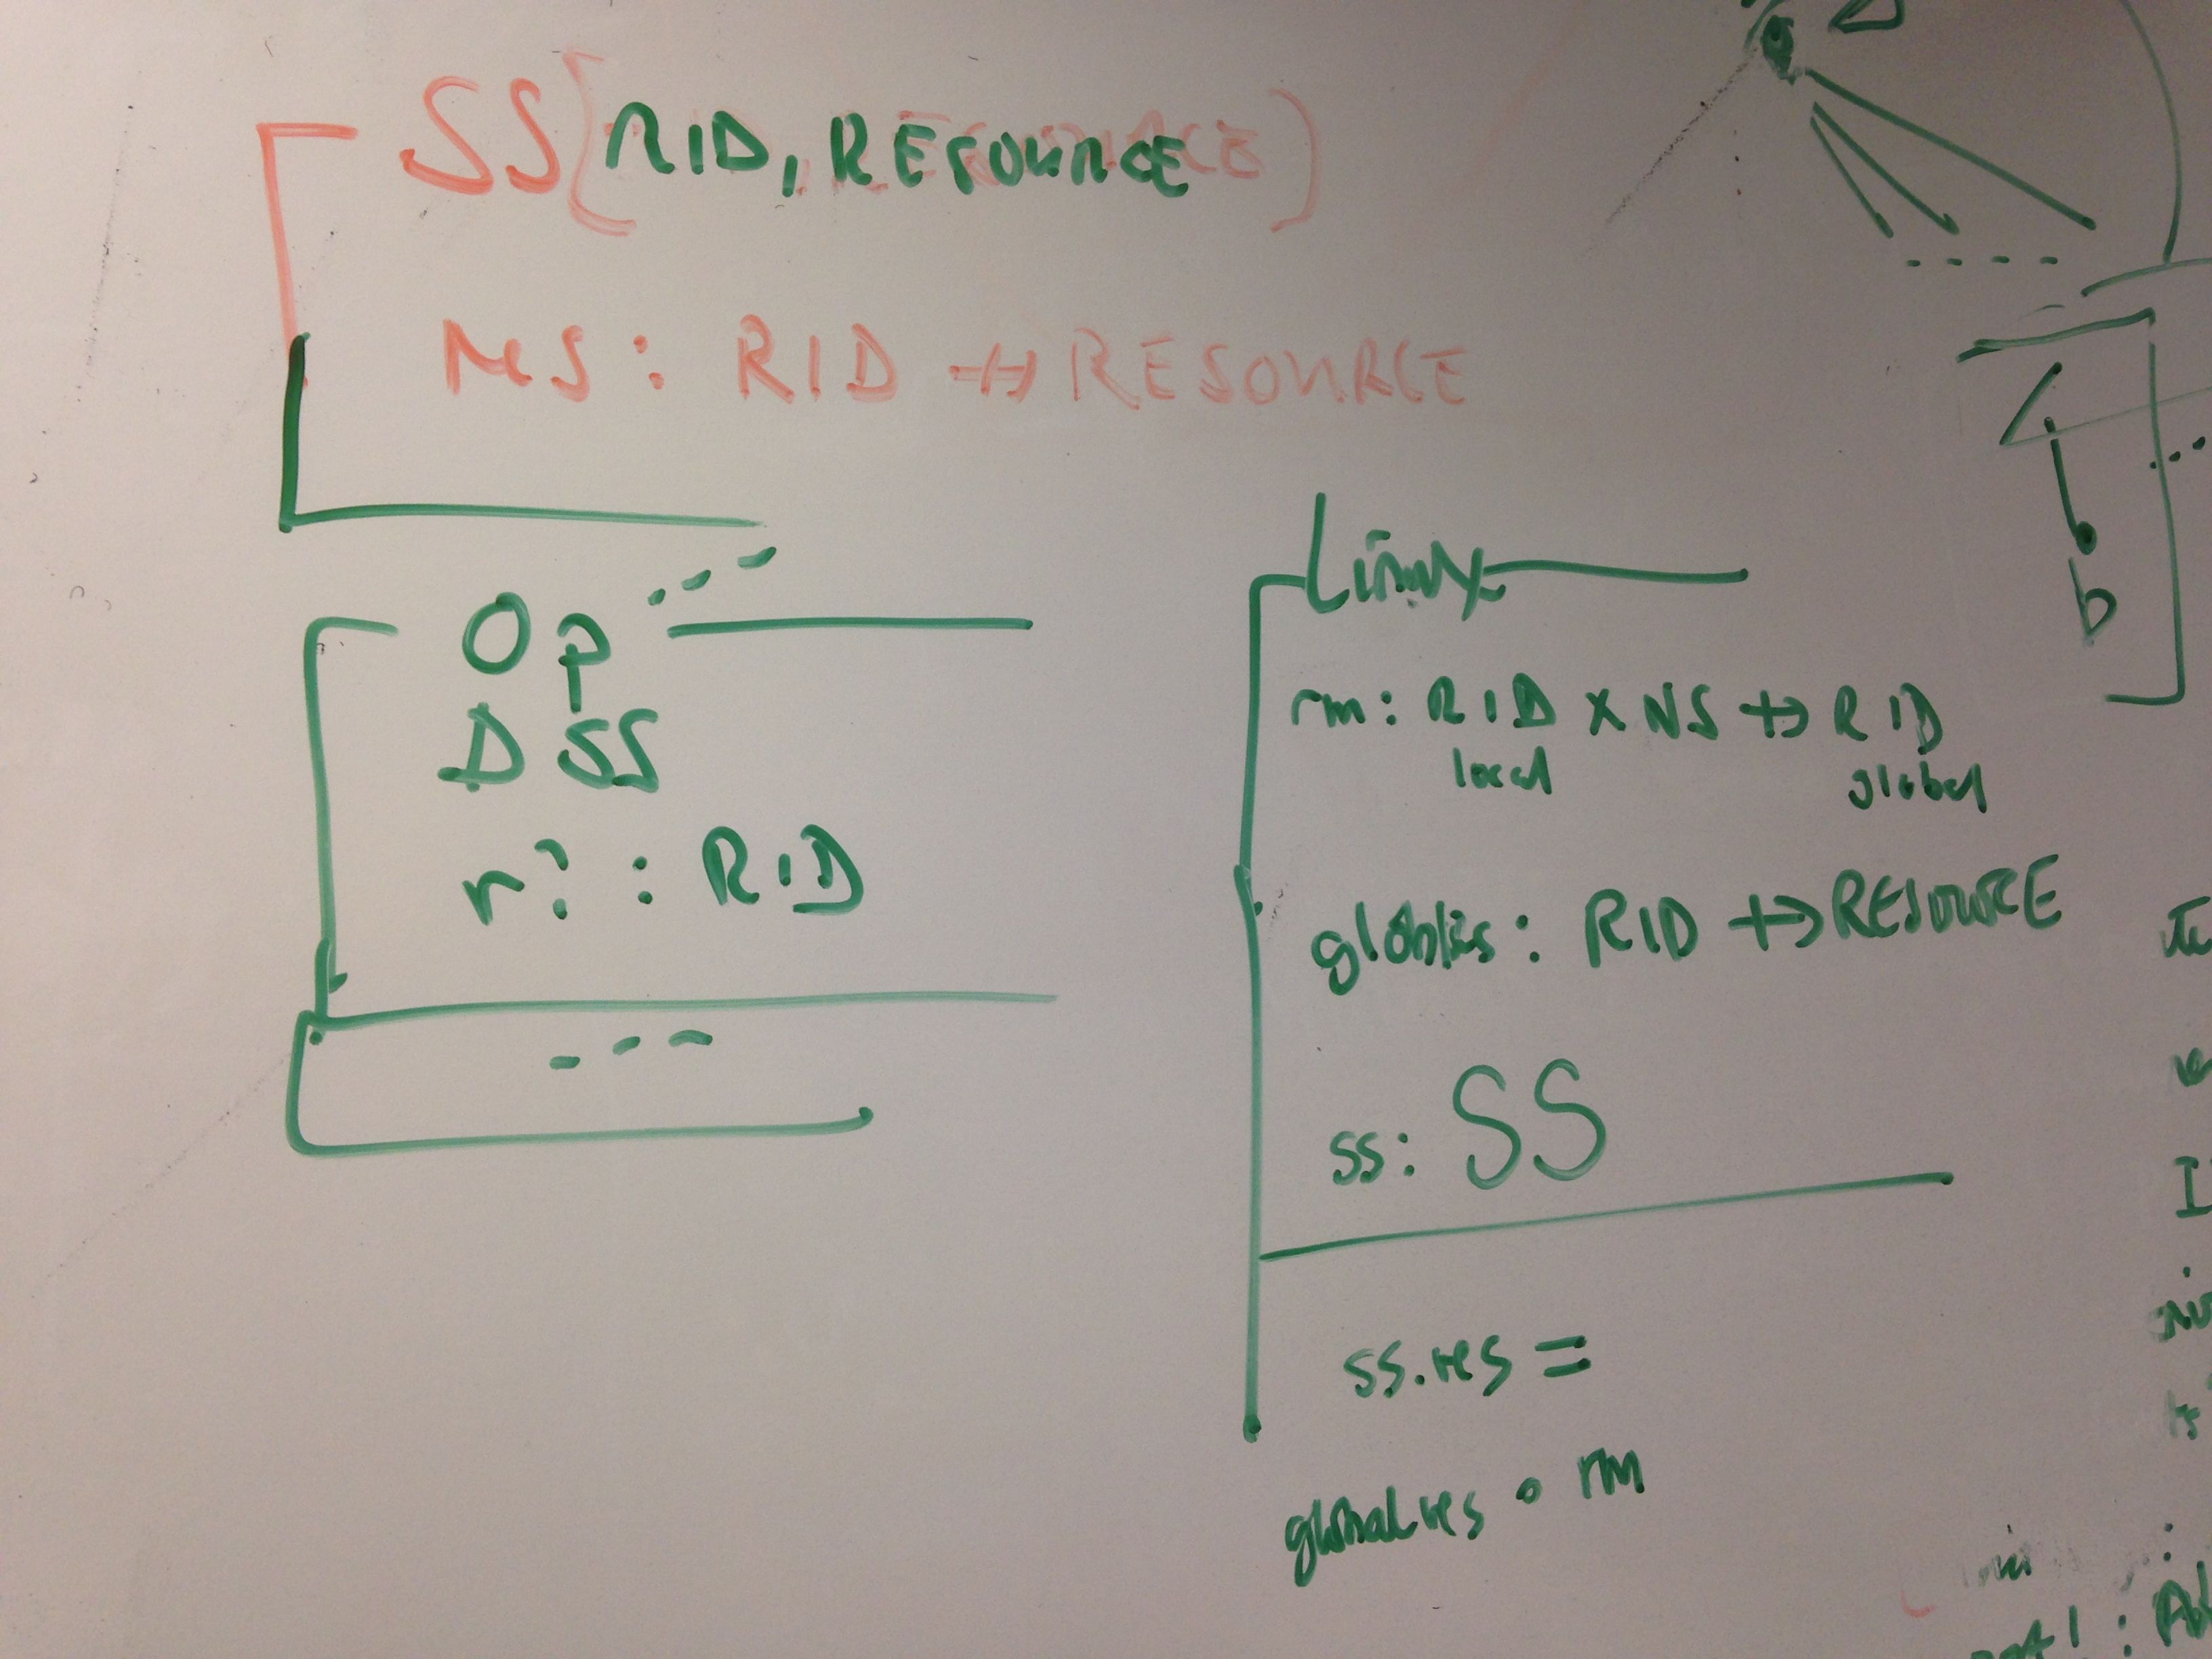 SS[RID, RESOURCE]
res: RID ⇸ RESOURCE
Op
Δ SS
r? : RID
Linux
rm: RID × NS ⇸ RID
local global
globalres: RID ⇸ RESOURCE
ss: SS
ss.res =
globalres ∘ rm
b